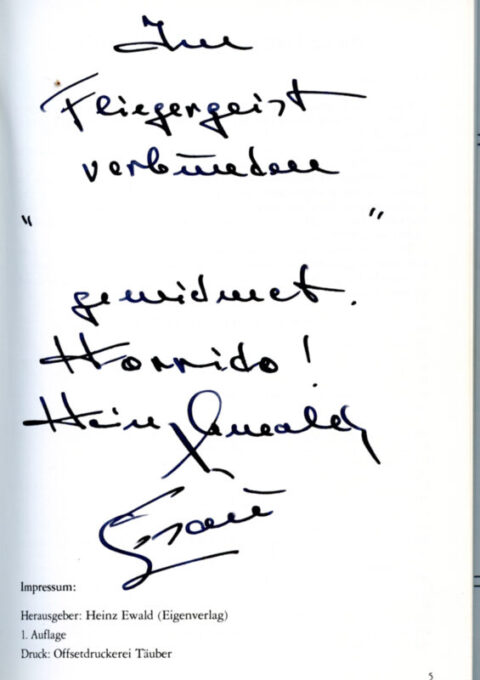 Im
Fliegergeist
verbunden
" "
gewidmet.
Horrido!
Heinz Ewald
Esau
Impressum:
Herausgeber: Heinz Ewald (Eigenverlag)
1. Auflage
Druck: Offsetdruckerei Täuber
5